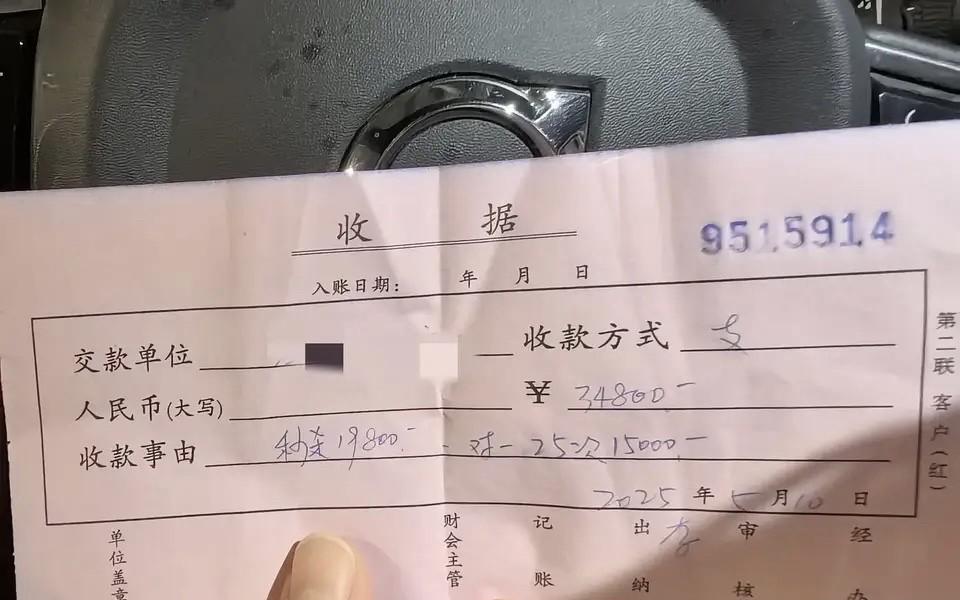 收据
9515914
入账日期： 年 月 日
交款单位 收款方式 支
人民币(大写) ¥ 34800-
收款事由 秒杀19800- 对一 25次15000-
2025年5月10日
第二联 客户(红)
单位盖章 财会主管 记账 出纳 审核 经办